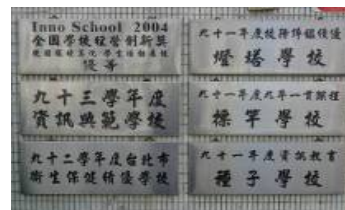 Inno School 2004
全國學校經營創新獎
優等
九十三學年度
資訊典範學校
九十二學年度台北市
衛生保健績優學校
燈塔學校
九十一年度九年一貫課程
標竿學校
九十一年度資訊教育
種子學校